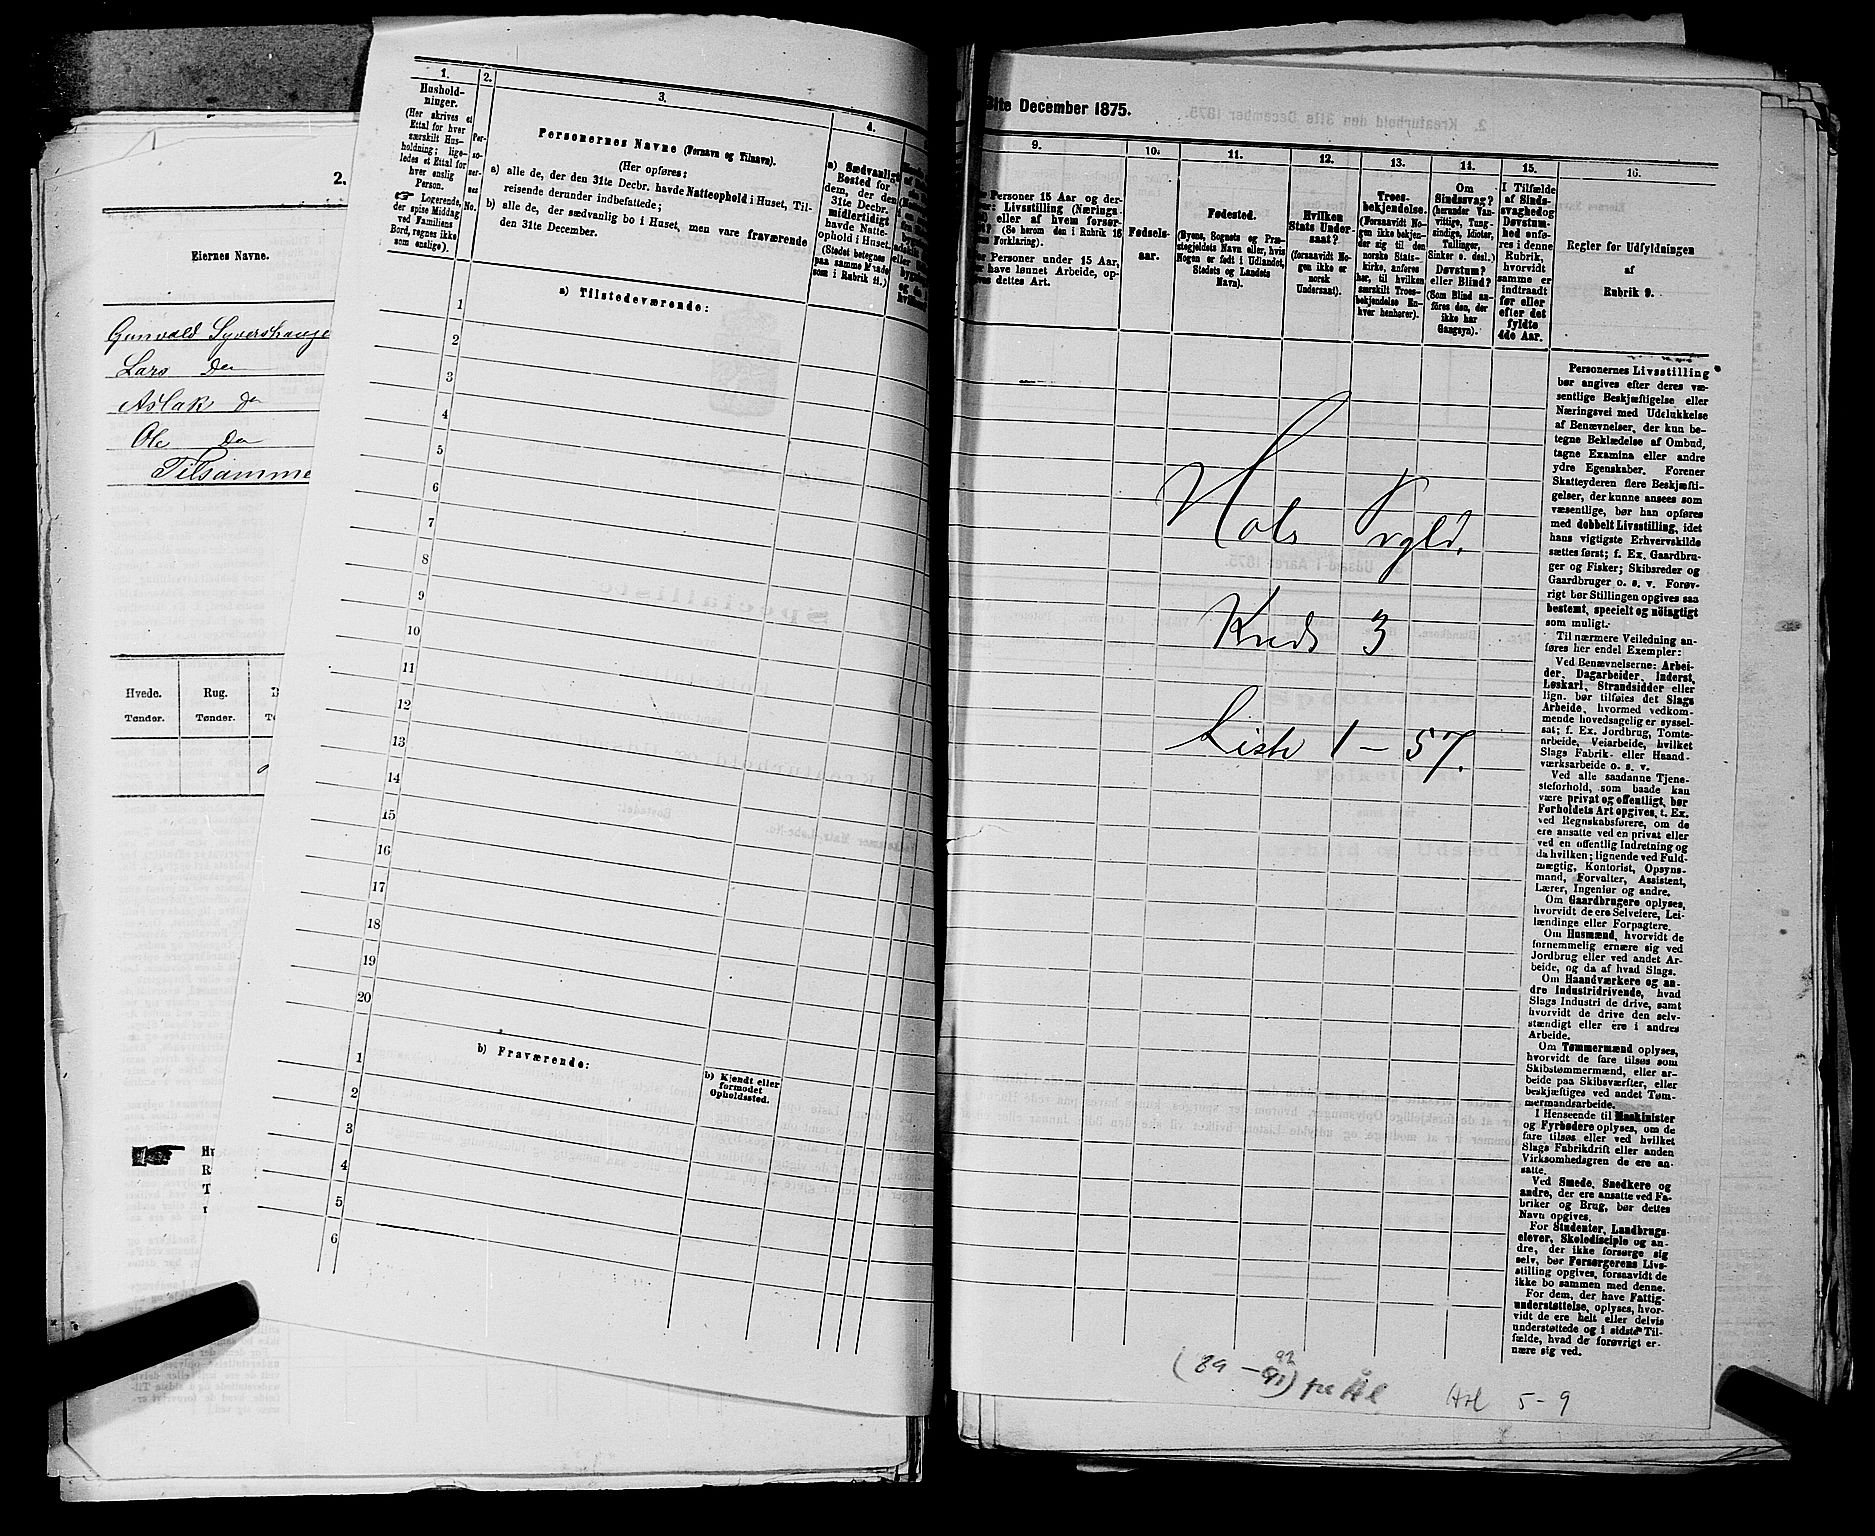 2.
Eiernes Navne.
Gunvald Syvershauge
Lars Do
Aslak do
Ole Do
Tilsamme
Hvede. Rug.
Tønder. Tønder.
1. 2. 3. 4.
Hushold-
ninger.
(Her skrives et
Ettal for hver
særskilt Hus-
holdning; lige-
ledes et Ettal for
hver enslig
Person.
Logerende,
der spise Middag
ved Familiens
Bord, regnes ikke
som enslige).
Per-
so-
ner-
nes
No.
Personernes Navne (Fornavn og Tilnavn).
(Her opføres:
a) alle de, der den 31te Decbr. havde Natteophold i Huset, Til-
reisende derunder indbefattede;
b) alle de, der sædvanlig bo i Huset, men vare fraværende
den 31te December.
a) Sædvanligt
Bosted for
dem, der den
31te Decbr.
midlertidigt
havde Natte-
ophold i Huset.
(Stedet betegnes
paa samme Maade
som i Rubrik 11.)
a) Tilstedeværende:
1
2
3
4
5
6
7
8
9
10
11
12
13
14
15
16
17
18
19
20
b) Fraværende:
b) Kjendt eller
formodet
Opholdssted.
1
2
3
4
5
6
31te December 1875.
9. 10. 11. 12. 13. 14. 15. 16.
Personer 15 Aar og der-
Livsstilling (Nærings-
eller af hvem forsør-
(Se herom den i Rubrik 16
Forklaring).
Personer under 15 Aar,
have lønnet Arbeide, op-
dettes Art.
Fødsels-
aar.
Fødested.
(Byens, Sognets og Præ-
stegjeldets Navn eller, hvis
Nogen er født i Udlandet,
Stedets og Landets
Navn).
Hvilken
Stats Under-
saat?
(forsaavidt No-
gen ikke er
norsk
Undersaat).
Troes-
bekjendelse.
(Forsaavidt No-
gen ikke bekjen-
der sig til den
norske Stats-
kirke, anføres
her, til hvilken
særskilt Troes-
bekjendelse En-
hver henhører).
Om
Sindssvag?
(herunder Van-
vittige, Tung-
sindige, Idioter,
Tullinger,
Sinker o. desl.)
Døvstum?
eller Blind?
(Som Blind an-
føres den, der
ikke har
Gangsyn).
I Tilfælde
af Sinds-
svaghed og
Døvstum-
hed anfø-
res i denne
Rubrik,
hvorvidt
samme er
indtraadt
før eller
efter det
fyldte
4de Aar.
Regler for Udfyldningen
af
Rubrik 9.
Hols Prgld.
Kreds 3
Liste 1 - 57.
Personernes Livsstilling
bør angives efter deres væ-
sentlige Beskjæftigelse eller
Næringsvei med Udelukkelse
af Benævnelser, der kun be-
tegne Beklædelse af Ombud,
tagne Examina eller andre
ydre Egenskaber. Forener
Skatteyderen flere Beskjæfti-
gelser, der kunne ansees som
væsentlige, bør han opføres
med dobbelt Livsstilling, idet
hans vigtigste Erhvervskilde
sættes først; f. Ex. Gaardbru-
ger og Fisker; Skibsreder og
Gaardbruger o. s. v. Forøv-
rigt bør Stillingen opgives saa
bestemt, specielt og nöiagtigt
som muligt.
Til nærmere Veiledning an-
føres her endel Exempler:
Ved Benævnelserne: Arbei-
der, Dagarbeider, Inderst,
Løskarl, Strandsidder eller
lign. bør tilføies det Slags
Arbeide, hvormed vedkom-
mende hovedsagelig er syssel-
sat; f. Ex. Jordbrug, Tomte-
arbeide, Veiarbeide, hvilket
Slags Fabrik- eller Haand-
værksarbeide o. s. v.
Ved alle saadanne Tjene-
steforhold, som baade kan
være privat og offentligt, bør
Forholdets Art opgives, t. Ex.
ved Regnskabsførere, om de
ere ansatte ved en privat eller
ved en offentlig Indretning og
da hvilken; lignende ved Fuld-
mægtig, Kontorist, Opsyns-
mand, Forvalter, Assistent,
Lærer, Ingeniør og andre.
Om Gaardbrugere oplyses,
hvorvidt de ere Selveiere, Lei-
lændinge eller Forpagtere.
Om Husmænd, hvorvidt de
fornemmelig ernære sig ved
Jordbrug eller ved andet Ar-
beide, og da af hvad Slags.
Om Haandværkere og an-
dre Industridrivende, hvad
Slags Industri de drive, samt
hvorvidt de drive den selv-
stændigt eller ere i andres
Arbeide.
Om Tømmermænd oplyses,
hvorvidt de fare tilsøs som
Skibstømmermænd, eller ar-
beide paa Skibsværfter, eller
beskjæftiges ved andet Tøm-
mermandsarbeide.
I Henseende til Maskinister
og Fyrbødere oplyses, om de
fare tilsøs eller ved hvilket
Slags Fabrikdrift eller anden
Virksomhedsgren de ere an-
satte.
Ved Smede, Snedkere og
andre, der ere ansatte ved Fa-
briker og Brug, bør dettes
Navn opgives.
For Studenter, Landbrugs-
elever, Skoledisciple og an-
dre, der ikke forsørge sig
selv, bør Forsørgerens Livs-
stilling opgives, forsaavidt de
ikke bo sammen med denne.
For dem, der have Fattig-
understøttelse, oplyses, hvor-
vidt de ere helt eller delvis
understøttede og i sidste Til-
fælde, hvad de forøvrigt er-
nære sig ved.
92
(89 - 91) fra Ål
Hol 5 - 9